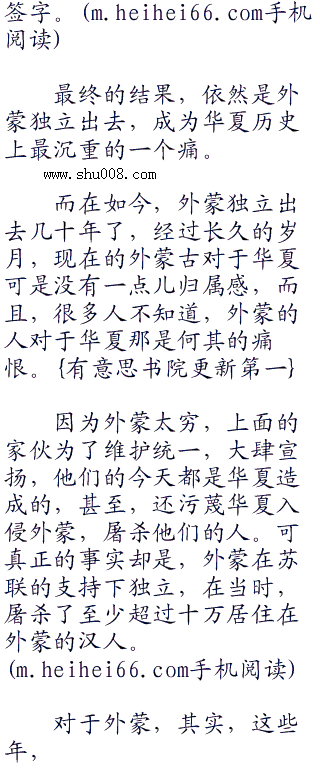 签字。(m.heihei66.com手机
阅读)
最终的结果，依然是外
蒙独立出去，成为华夏历史
上最沉重的一个痛。
www.shu008.com
而在如今，外蒙独立出
去几十年了，经过长久的岁
月，现在的外蒙古对于华夏
可是没有一点儿归属感，而
且，很多人不知道，外蒙的
人对于华夏那是何其的痛
恨。{有意思书院更新第一}
因为外蒙太穷，上面的
家伙为了维护统一，大肆宣
扬，他们的今天都是华夏造
成的，甚至，还污蔑华夏入
侵外蒙，屠杀他们的人。可
真正的事实却是，外蒙在苏
联的支持下独立，在当时，
屠杀了至少超过十万居住在
外蒙的汉人。
(m.heihei66.com手机阅读)
对于外蒙，其实，这些
年，